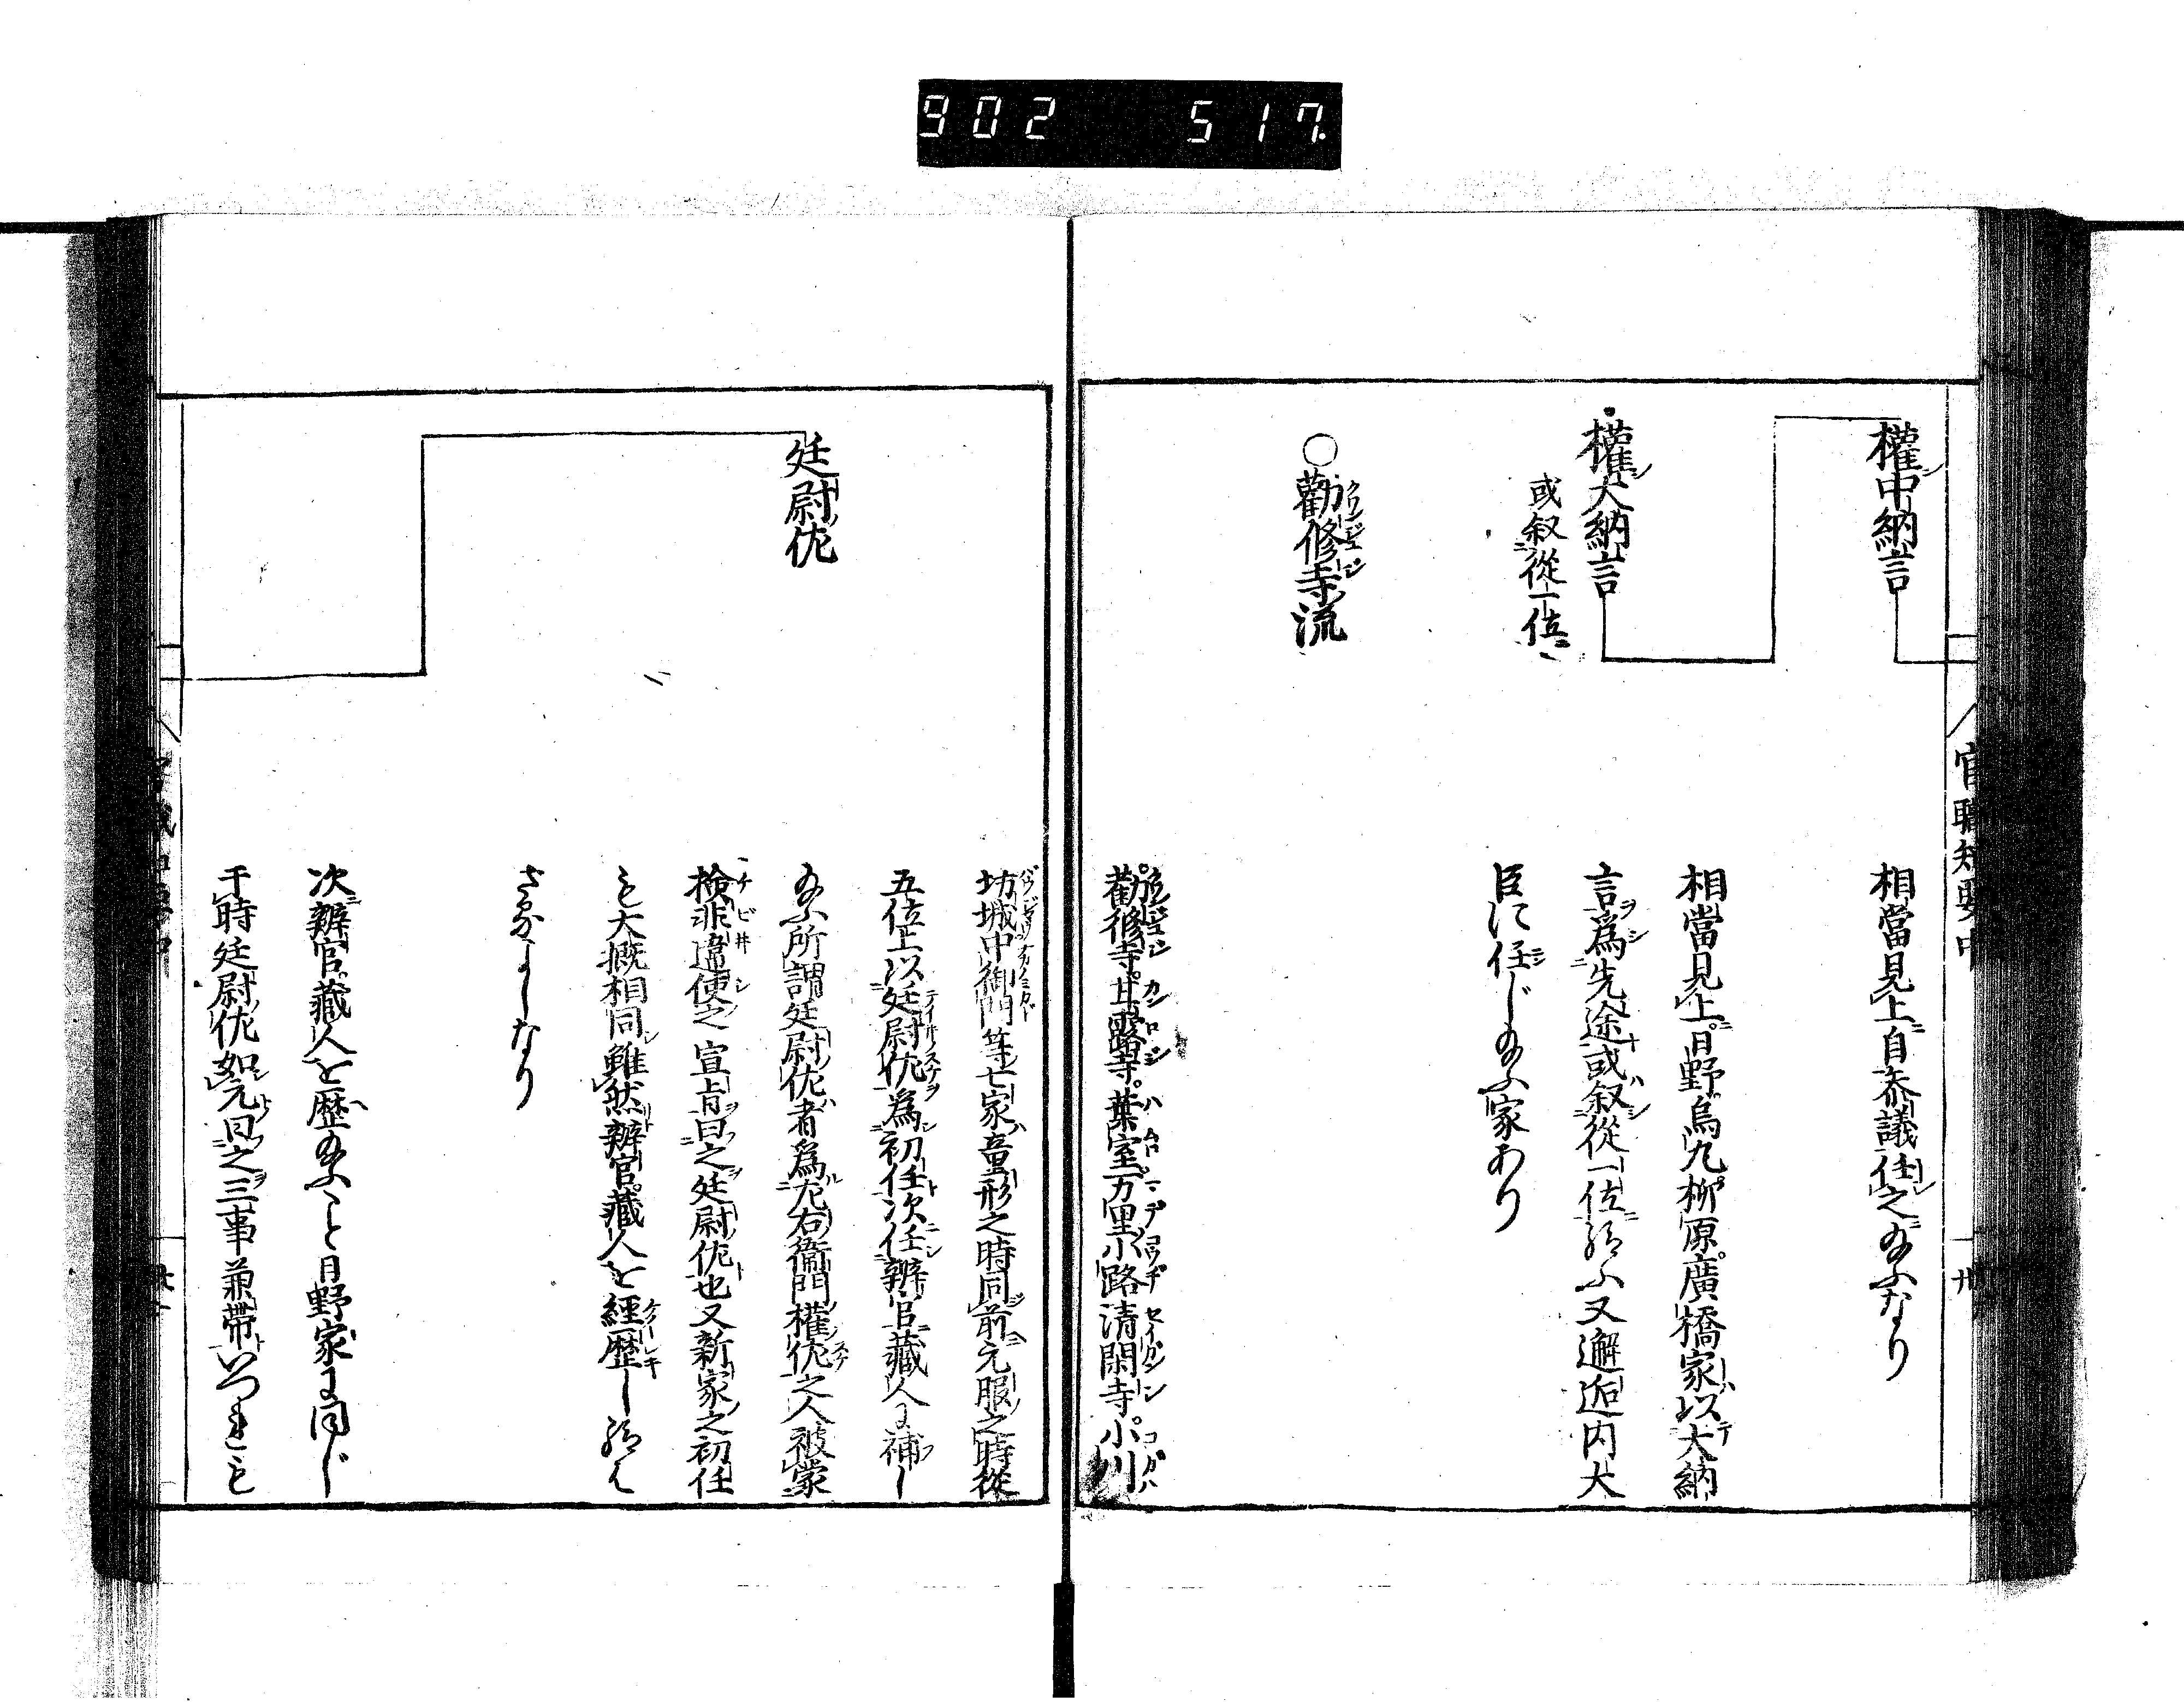 902 517.
官職知要中
卅
權中納言
相當見上自叅議任之給ふなり
相當見上日野烏丸柳原廣橋家以大納
權大納言
言爲先途或叙從一位給ふ又邂逅内大
或叙從一位
臣に任じ給ふ家あり
○勸修寺流
勸修寺甘露寺葉室万里小路清閑寺小川
坊城中御門等七家童形之時同前元服之時從
五位上以廷尉佐爲初任次任辨官藏人に補し
廷尉佐
給ふ所謂廷尉佐者爲左右衞門權佐之人被蒙
檢非違使之宣旨曰之廷尉佐也又新家之初任
も大概相同雖然辨官藏人を經歴し給は
ざるよしなり
次辨官藏人を歴給ふこと日野家に同じ
于時廷尉佐如元曰之三事兼帶いつれも